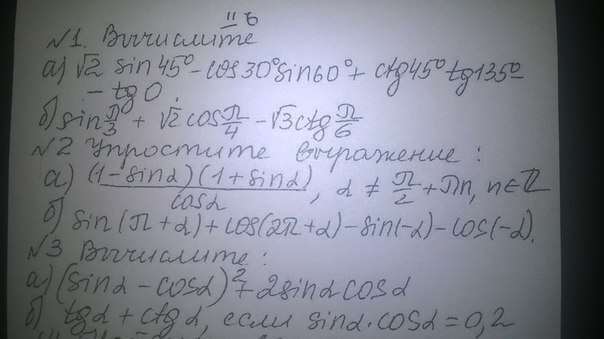 "б
№1. Вычислите
а) √2 sin 45° - cos 30° sin 60° + ctg 45° tg 135° -
- tg 0.
б) sin π/3 + √2 cos π/4 - √3 ctg π/6
№2 Упростите выражение :
а) (1 - sin α)(1 + sin α) / cos α, α ≠ π/2 + πn, n ∈ Z
б) sin (π + α) + cos (2π + α) - sin(-α) - cos(-α).
№3 Вычислите :
а) (sin α - cos α)² + 2 sin α cos α
б) tg α + ctg α, если sin α · cos α = 0,2